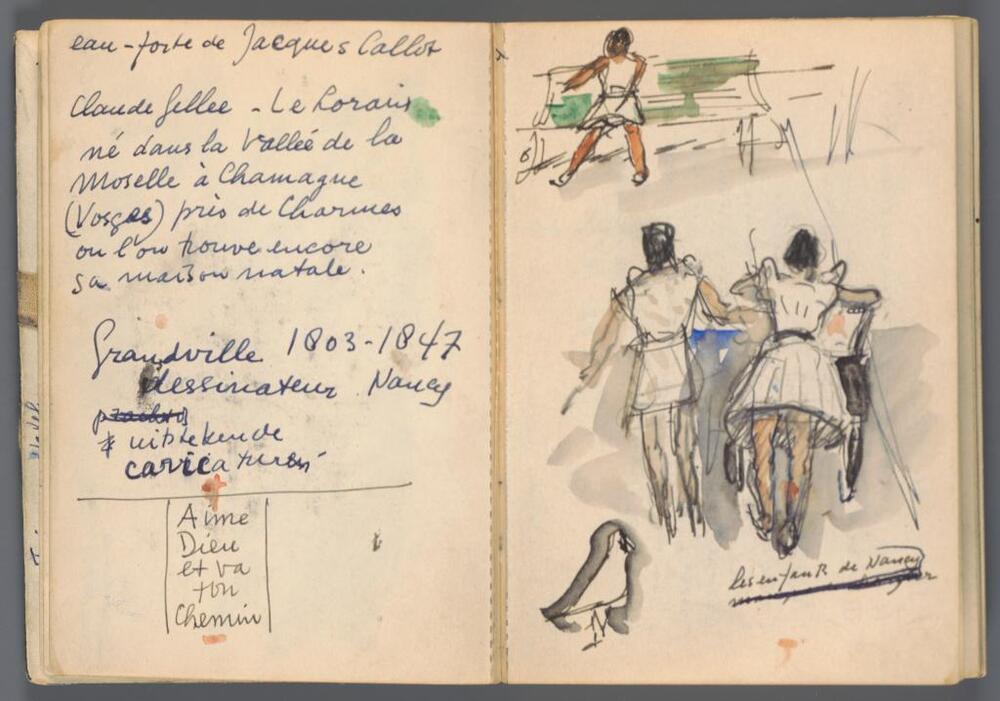 eau-forte de Jacques Callot
Claude Gellee - Le Lorain
né dans la Vallée de la
Moselle à Chamagne
(Vosges) près de Charmes
ou l'on trouve encore
sa maison natale.
Grandville 1803-1847
dessinateur Nancy
uitstekende
caricaturen
Aime
Dieu
et va
ton
Chemin
les enfants de Nancy